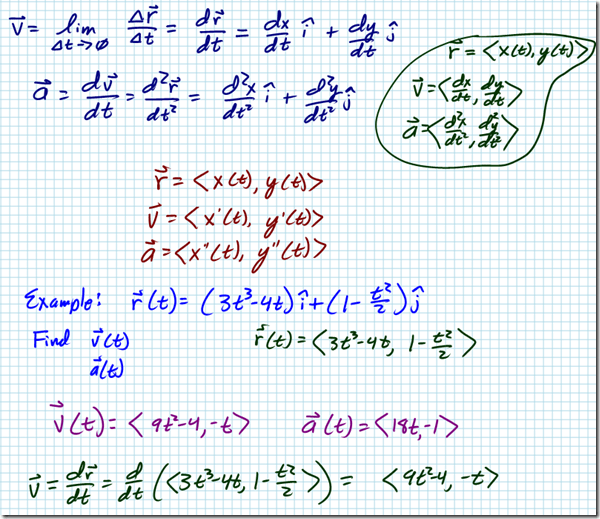 v⃗ = lim Δt→0 Δr⃗/Δt = dr⃗/dt = dx/dt î + dy/dt ĵ
r⃗ = <x(t), y(t)>
a⃗ = dv⃗/dt = d²r⃗/dt² = d²x/dt² î + d²y/dt² ĵ
v⃗ = <dx/dt, dy/dt>
a⃗ = <d²x/dt², d²y/dt²>
r⃗ = <x(t), y(t)>
v⃗ = <x'(t), y'(t)>
a⃗ = <x''(t), y''(t)>
Example: r⃗(t) = (3t³-4t)î + (1 - t²/2)ĵ
Find v⃗(t)
r⃗(t) = <3t³-4t, 1 - t²/2>
a⃗(t)
v⃗(t) = <9t²-4, -t>
a⃗(t) = <18t, -1>
v⃗ = dr⃗/dt = d/dt (<3t³-4t, 1 - t²/2>) = <9t²-4, -t>